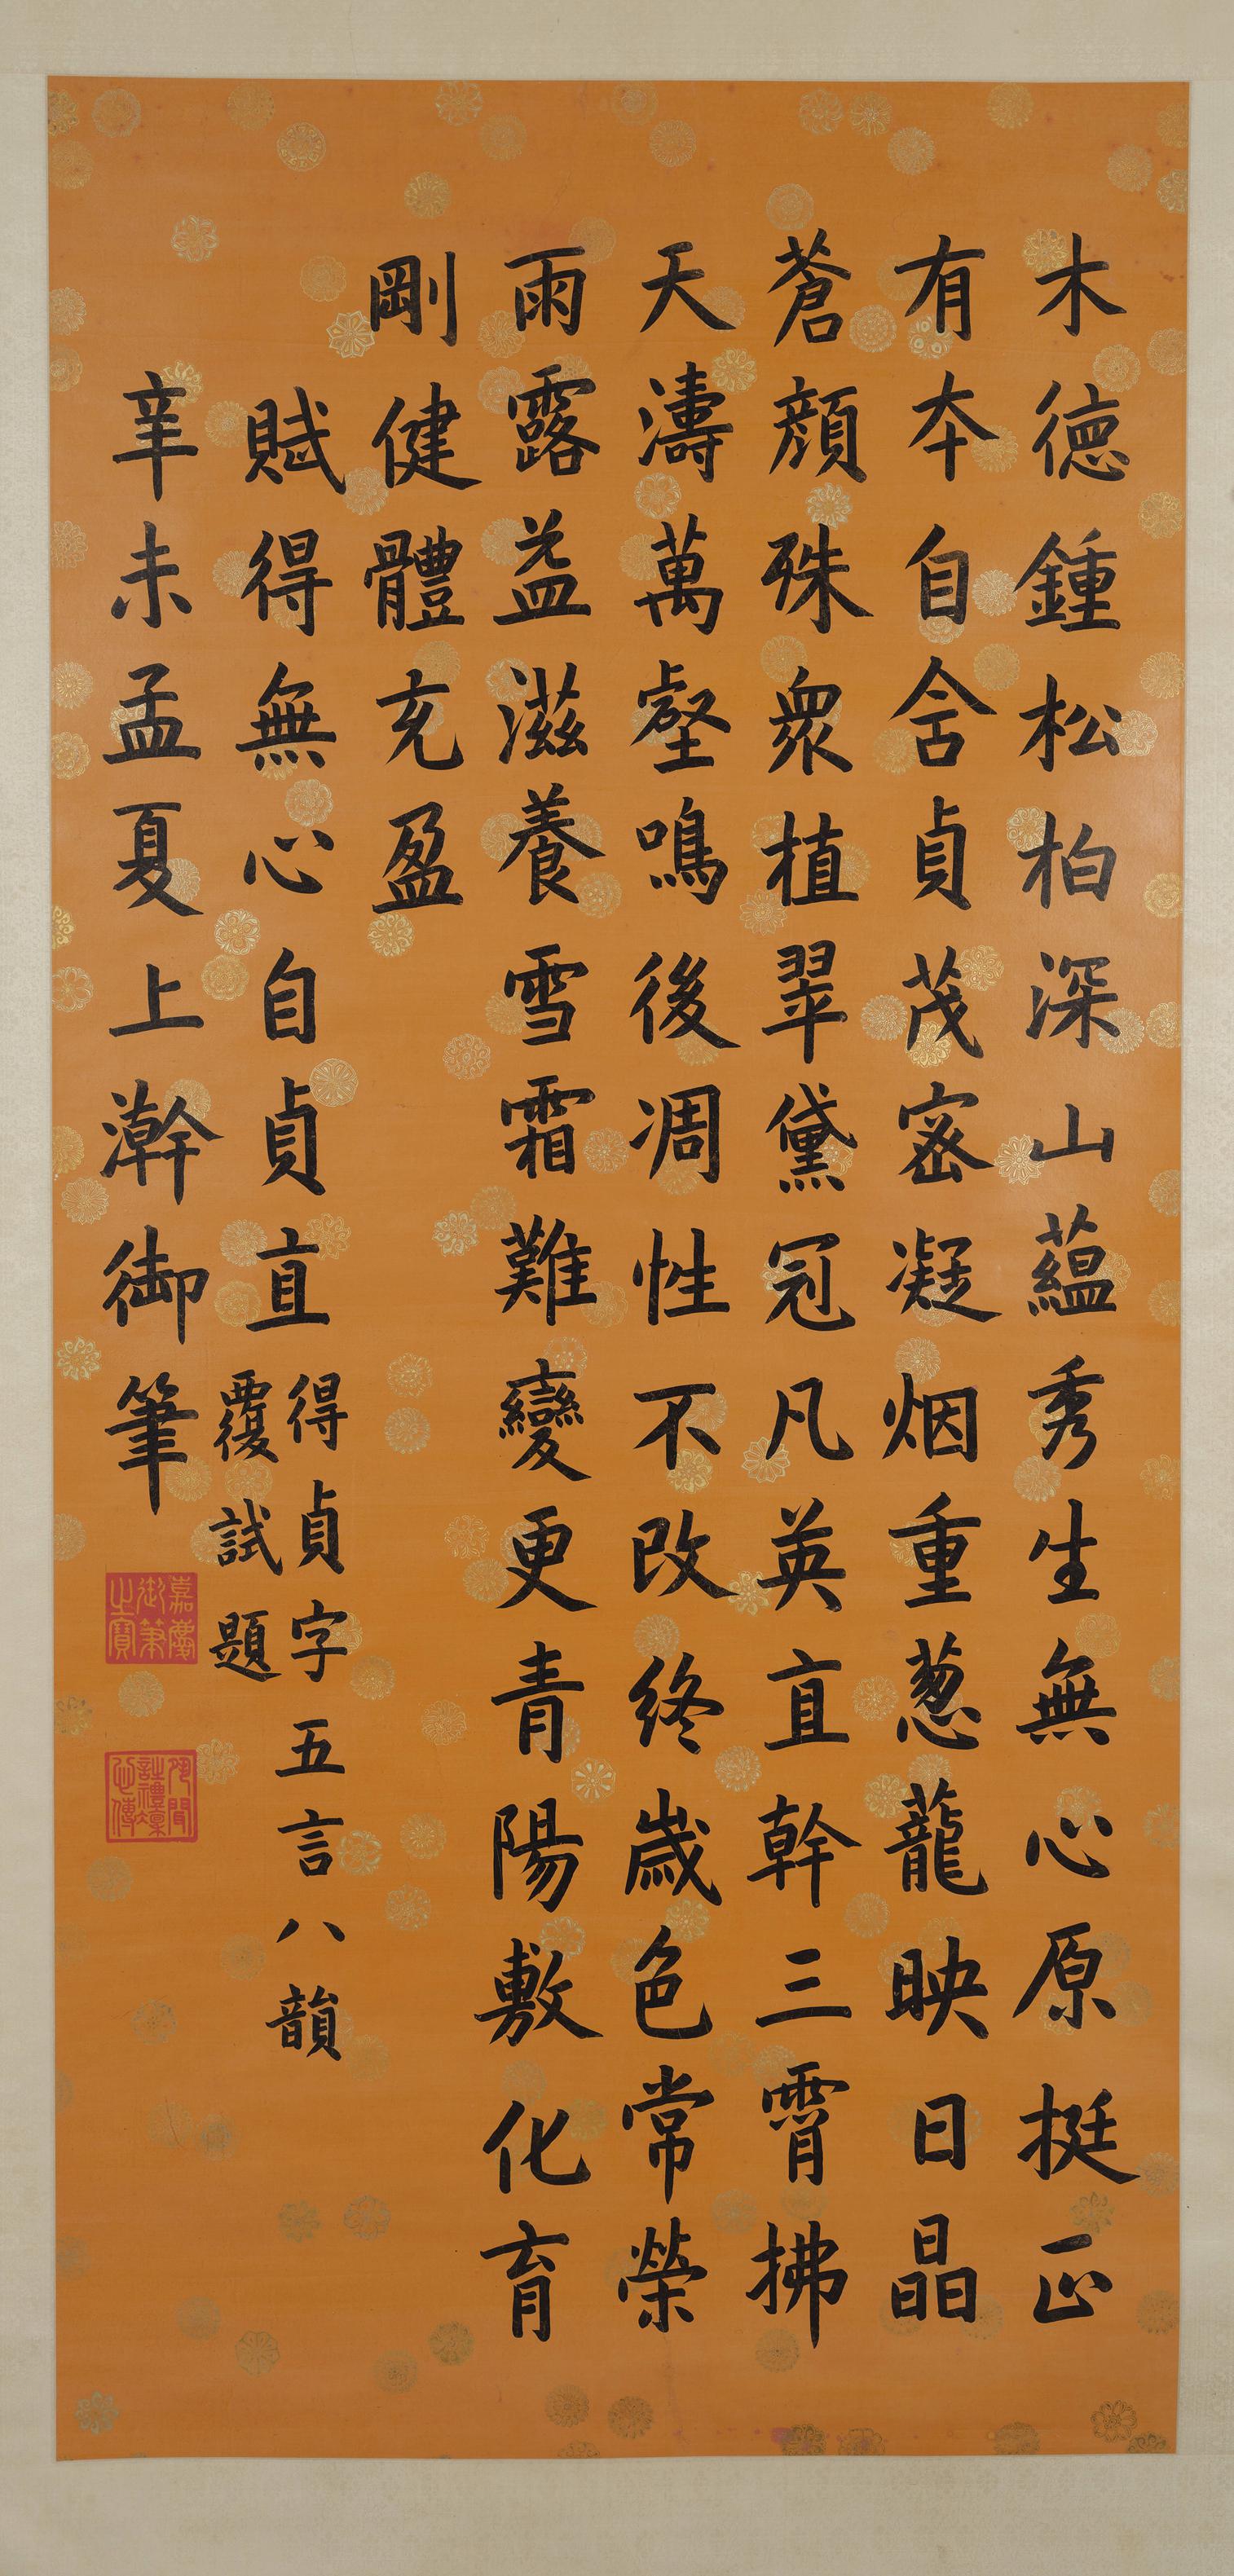 木德鍾松柏深山蘊秀生無心原挺正
有本自含貞茂密凝烟重葱蘢映日晶
蒼顔殊衆植翠黛冠凡英直幹三霄拂
天濤萬壑鳴後凋性不改終歲色常榮
雨露益滋養雪霜難變更青陽敷化育
剛健體充盈
賦得無心自貞直
得貞字五言八韻
覆試題
辛未孟夏上澣御筆
嘉慶御筆之寶
夙聞詩禮凜心傳